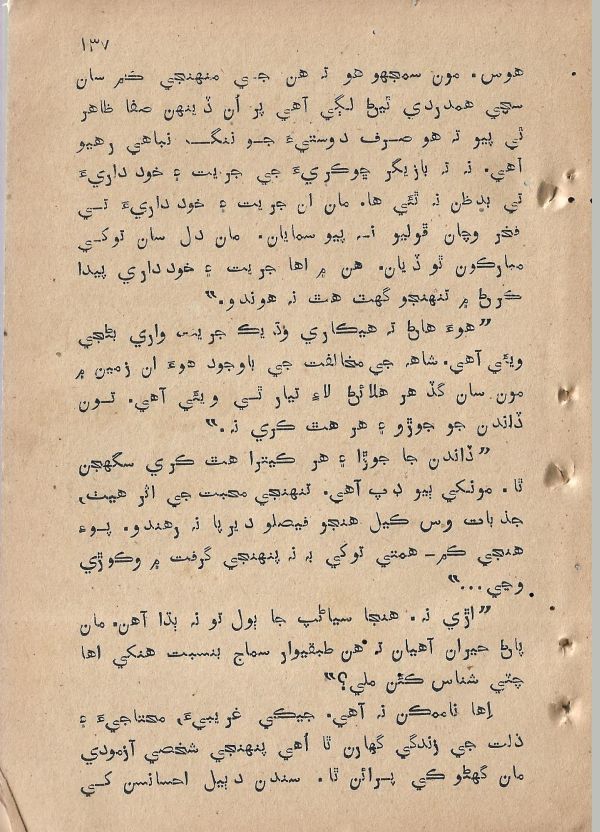 ١٣٧
هوس. مون سمجهو هو تہ هن جي منهنجي ڪم سان
سچي همدردي ٿيڻ لڳي آهي پر اُن ڏينهن صفا ظاهر
ٿي پيو تہ هو صرف دوستيءَ جو ننگ نباهي رهيو
آهي. نہ تہ بازيگر ڇوڪريءَ جي جريت ۽ خودداريءَ
تي بدظن نہ ٿئي ها. مان ان جريت ۽ خودداريءَ تي
فخر وچان ڦوليو نہ پيو سمايان. مان دل سان توکي
مبارڪون ٿو ڏيان. هن ۾ اها جريت ۽ خودداري پيدا
ڪرڻ ۾ تنهنجو گهٽ هٿ نہ هوندو.“
”هوءَ هاڻ تہ هيڪاري وڌيڪ جريت واري بڻجي
ويئي آهي. شاهہ جي مخالفت جي باوجود هوءَ ان زمين ۾
مون سان گڏ هر هلائڻ لاءِ تيار ٿي ويئي آهي. تون
ڏاندن جو جوڙو ۽ هر هٿ ڪري نہ.“
”ڏاندن جا جوڙا ۽ هر ڪيترا هٿ ڪري سگهجن
ٿا. مونکي ٻيو ڊپ آهي. تنهنجي محبت جي اثر هيٺ،
جذبات وس ڪيل هنجو فيصلو ديرپا نہ رهندو. پوءِ
هنجي ڪم-همتي توکي بہ نہ پنهنجي گرفت ۾ وڪوڙي
وڃي...“
”اڙي نہ. هنجا سياڻپ جا ٻول تو نہ ٻڌا آهن. مان
پاڻ حيران آهيان تہ هن طبقيوار سماج بنسبت هنکي اها
چٽي شناس ڪٿن ملي؟“
اِها ناممڪن نہ آهي. جيڪي غريبيءَ، محتاجيءَ ۽
ذلت جي زندگي گهارن ٿا اُهي پنهنجي شخصي آزمودي
مان گهڻو ڪي پرائن ٿا. سندن دٻيل احسانسن کي